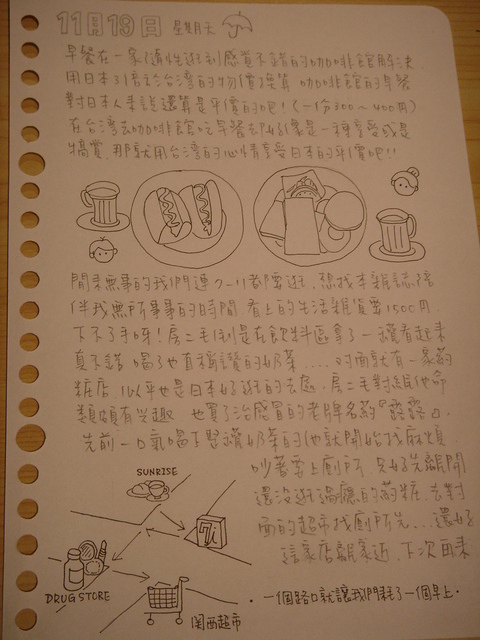 11月19日 星期天
早餐在一家隨性逛到感覺不錯的咖啡館解決
用日本刀億元台灣的物價換算 咖啡館的早餐
對日本人來說還算是平價的吧！(一份300～400円)
在台灣去咖啡館吃早餐却好像是一種享受或是
犒賞,那就用台灣的心情享受日本的平價吧!!
閒來無事的我們連7-11都要逛,想找本雜誌陪
伴我無所事事的時間,看上的生活雜貨要1500円,
下不了手呀！房二毛則是在飲料區拿了一罐看起來
真不錯 喝了也直稱讚的奶茶.....對面就有一家藥
粧店,似乎也是日本好逛的去處,房二毛對維他命
類頗有興趣 也買了治感冒的老牌名藥『露露』,
先前一口氣喝下整罐奶茶的他就開始找麻煩
吵著要上廁所 只好先離開
還沒逛過癮的藥粧,去對
面的超市找廁所先...還好
這家店離家近,下次再來
SUNRISE
7i
DRUG STORE
関西超市
·一個路口就讓我們耗了一個早上·